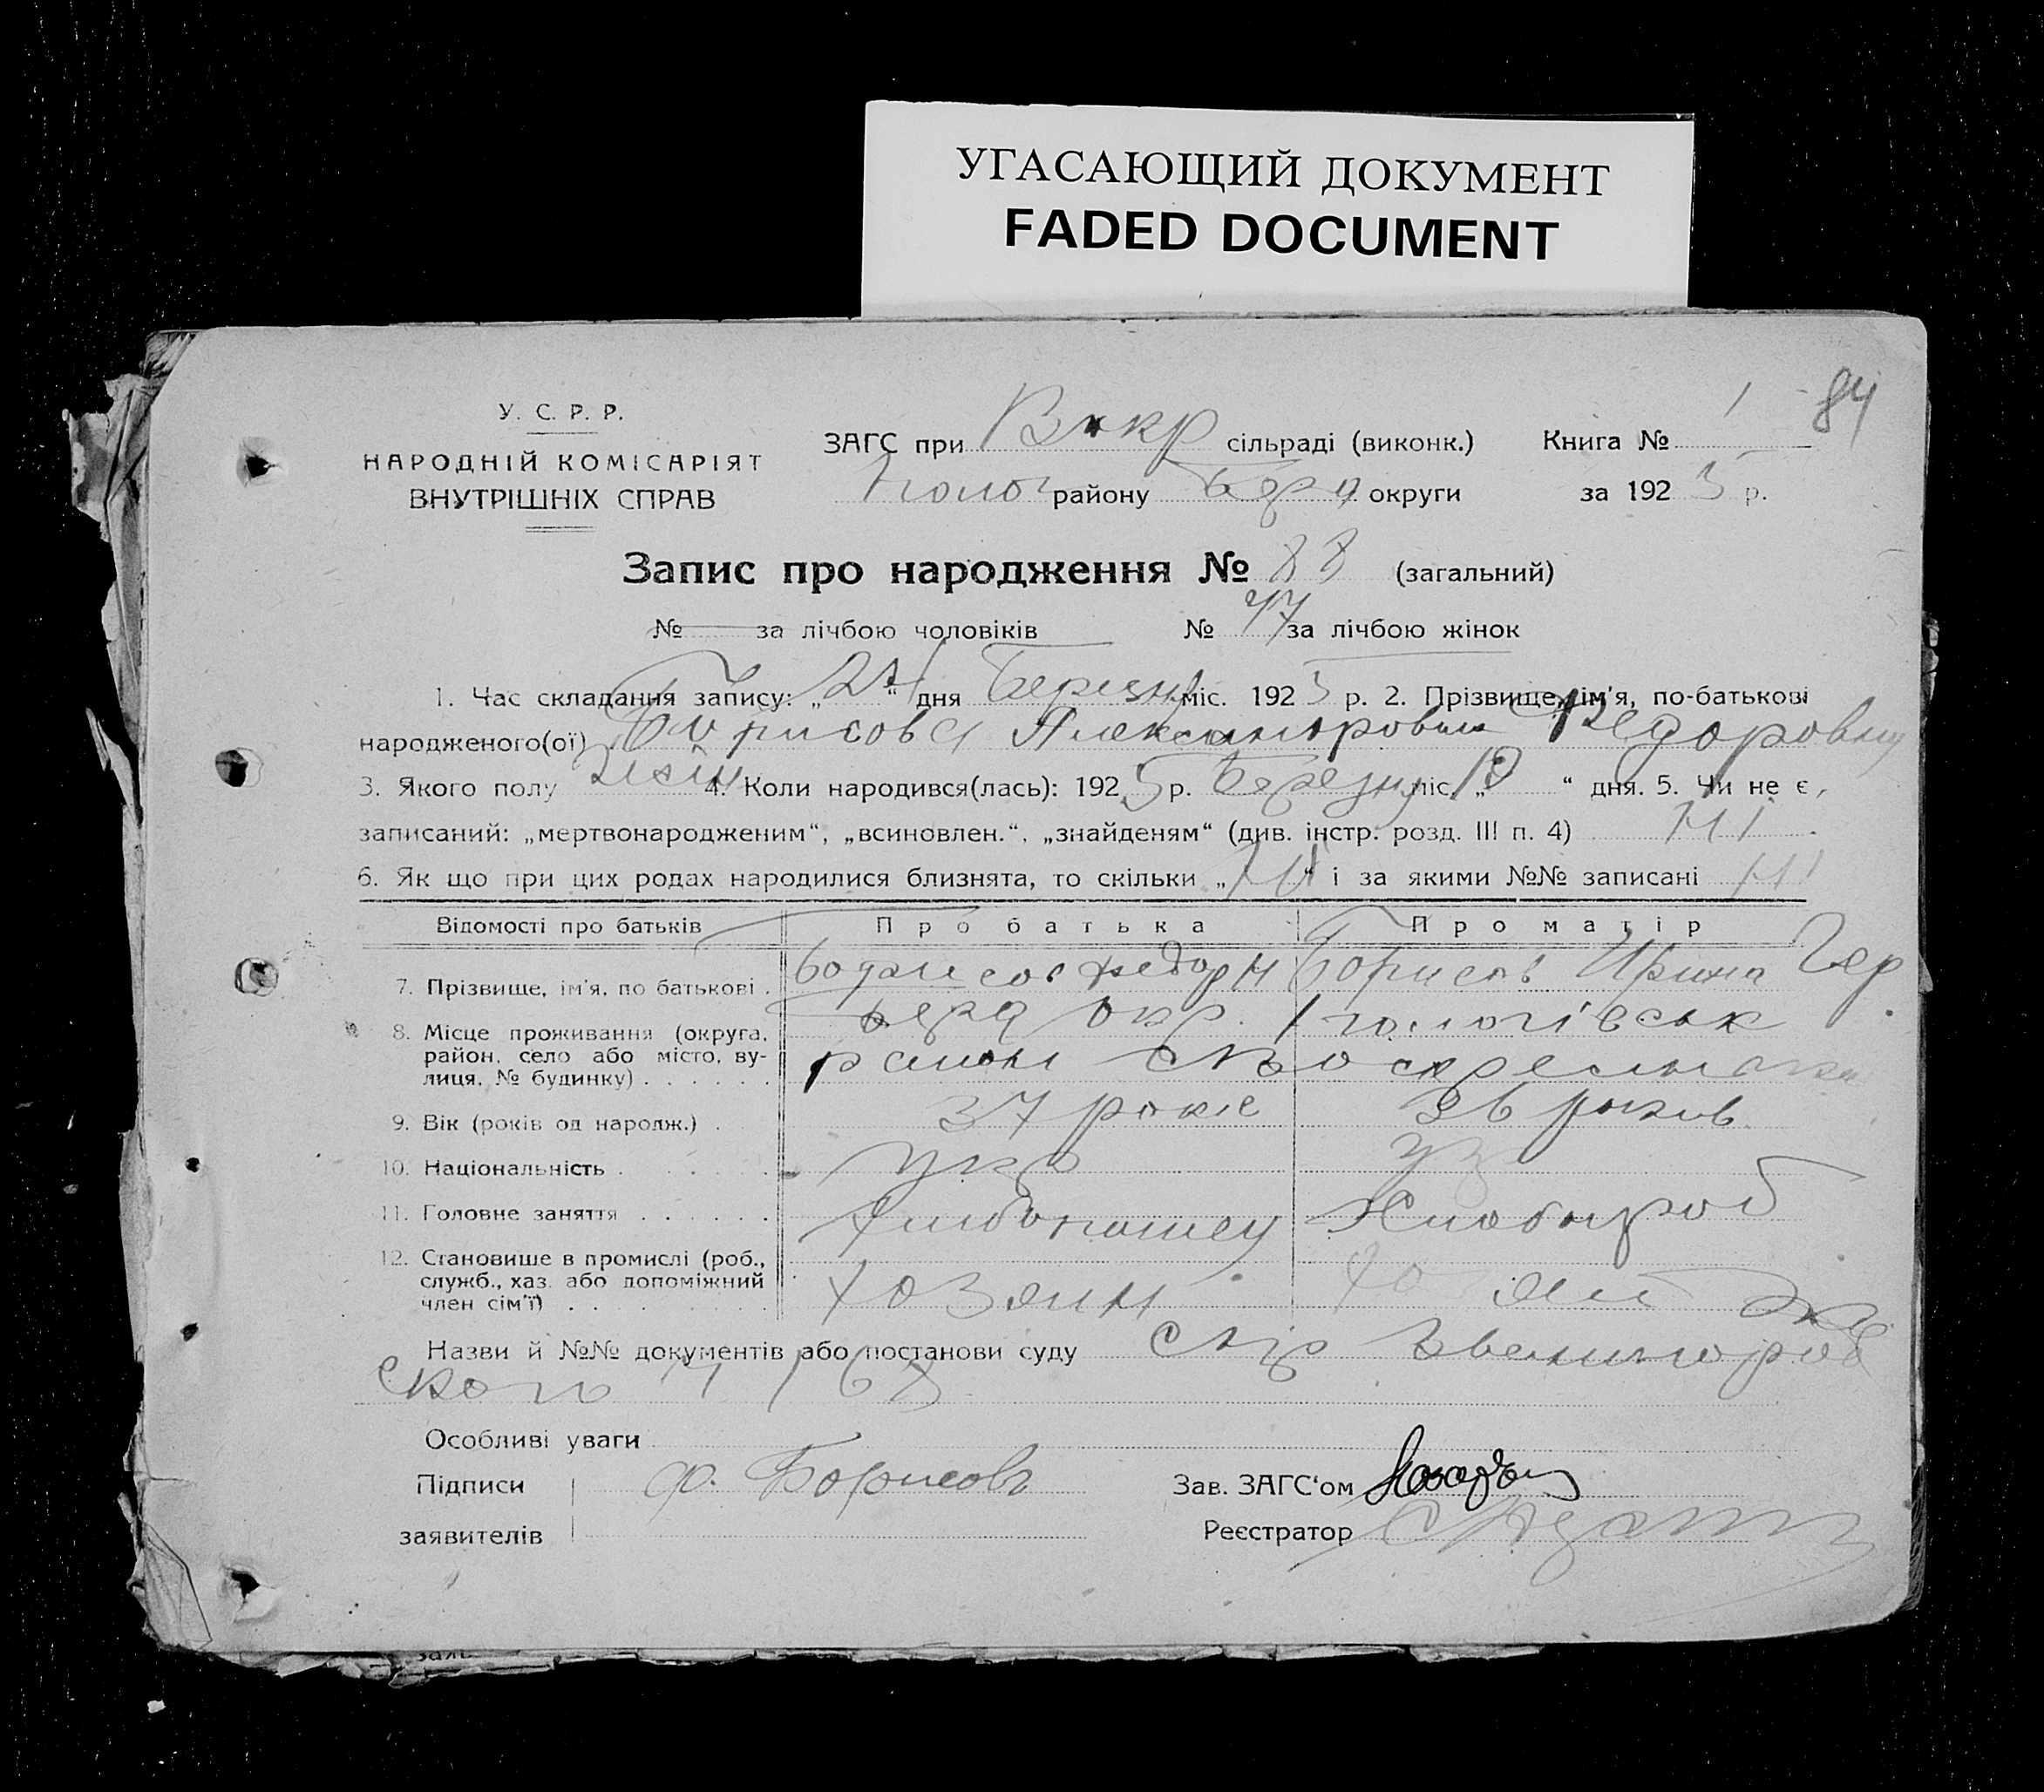 УГАСАЮЩИЙ ДОКУМЕНТ
FADED DOCUMENT
84
У. С. Р. Р.
НАРОДНІЙ КОМІСАРІЯТ
ВНУТРІШНІХ СПРАВ
ЗАГС при Вскр сільраді (виконк.) Книга № 1
Полог району Берд округи за 1925 р.
Запис про народження № 88 (загальний)
№ за лічбою чоловіків № 47 за лічбою жінок
1. Час складання запису: „24“ дня Березня міс. 1925 р. 2. Прізвище, ім'я, по-батькові
народженого(ої) Борисова Александровна Федоровна
3. Якого полу 4. Коли народився(лась): 1925 р. Березня міс. „19“ дня. 5. Чи не є,
записаний: „мертвонародженим“, „всиновлен.“, „знайденям“ (див. інстр. розд. III п. 4) Ні
6. Як що при цих родах народилися близнята, то скільки „Ні“ і за якими №№ записані Ні
Відомості про батьків Про батька Про матір
7. Прізвище, ім'я, по батькові . Борисов Федор Н Борисов Ирина Гер
8. Місце проживання (округа, район, село або місто, вулиця, № будинку) . . . . . . Берд окр. Пологівськ
район
9. Вік (років од народж.) . 37 років 36 років
10. Національність . . . . . Укр Ук
11. Головне заняття . . . . . . Хлібопашец Хлібороб
12. Становище в промислі (роб., служб., хаз. або допоміжний член сім'ї) . . . . . . Хозяин
Назви й №№ документів або постанови суду Звенигород
ского № 168
Особливі уваги
Підписи ф. Борисовъ Зав. ЗАГС'ом
заявителів Реєстратор